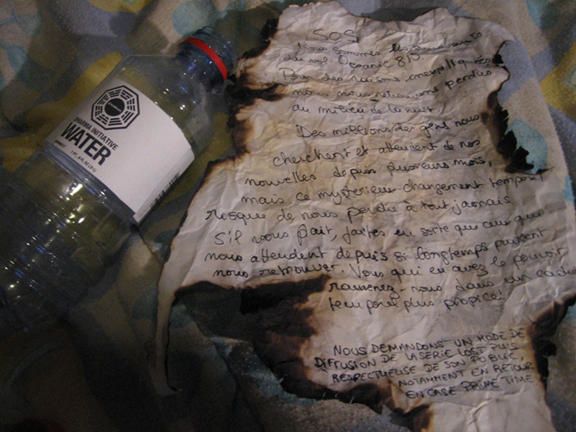 DHARMA INITIATIVE
WATER
SOS
Nous sommes les survivants
du vol Oceanic 815.
Pour des raisons
nous nous perdus
au milieu de la nuit
Des millions de gens nous
cherchent et attendent de nos
nouvelles depuis plusieurs mois,
mais ce mystérieux changement temporel
risque de nous perdre à tout jamais
S'il vous plait, faites en sorte que ceux qui
nous attendent depuis si longtemps puissent
nous retrouver. Vous qui en avez le pouvoir
ramenez-nous dans un cadre
temporel plus propice!
NOUS DEMANDONS UN MODE DE
DIFFUSION DE LA SERIE LOST PLUS
RESPECTUEUSE DE SON PUBLIC,
NOTAMMENT EN RETOUR
EN CASE PRIME TIME